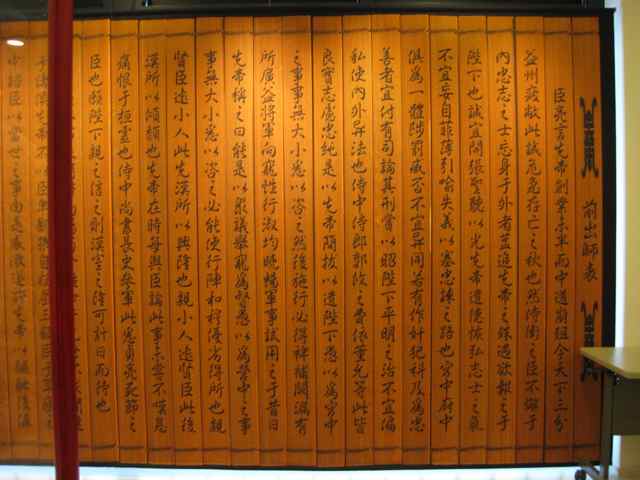 前出師表
臣亮言先帝創業未半而中道崩殂今天下三分
益州疲敝此誠危急存亡之秋也然侍衛之臣不懈于
內忠志之士忘身于外者蓋追先帝之殊遇欲報之于
陛下也誠宜開張聖聽以光先帝遺德恢弘志士之氣
不宜妄自菲薄引喻失義以塞忠諫之路也宮中府中
俱為一體陟罰臧否不宜異同若有作奸犯科及為忠
善者宜付有司論其刑賞以昭陛下平明之治不宜偏
私使內外異法也侍中侍郎郭攸之費依董允等此皆
良實志慮忠純是以先帝簡拔以遺陛下愚以為宮中
之事事無大小悉以咨之然後施行必得裨補闕漏有
所廣益將軍向寵性行淑均曉暢軍事試用之于昔日
先帝稱之曰能是以眾議舉寵為督愚以為營中之事
事無大小悉以咨之必能使行陣和穆優劣得所也親
賢臣遠小人此先漢所以興隆也親小人遠賢臣此後
漢所以傾頹也先帝在時每與臣論此事未嘗不嘆息
痛恨于桓靈也侍中尚書長史參軍此悉貞亮死節之
臣也願陛下親之信之則漢室之隆可計日而待也
中諮臣以當世之事由是感激遂許先帝以驅馳後值